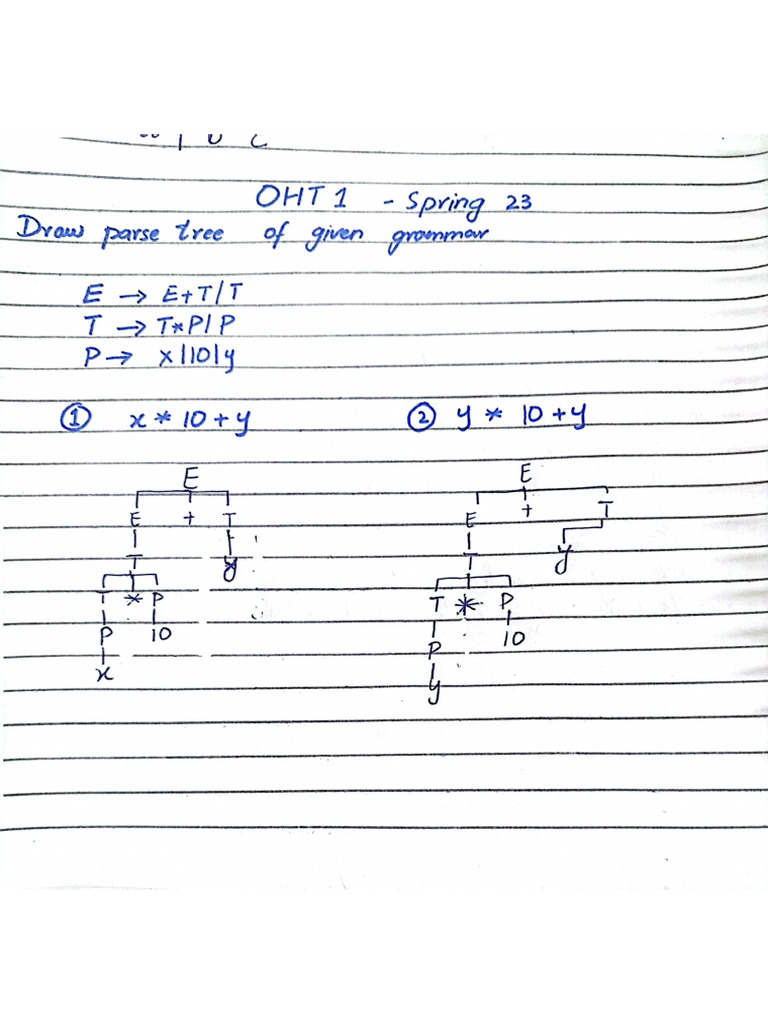 OHT 1 - Spring 23
Draw parse tree of given grammar
E → E+T/T
T → T*P|P
P → x|10|y
① x * 10 + y ② y * 10 + y
E E
E + T E + T
T y T y
T * P T * P
P 10 P 10
x y